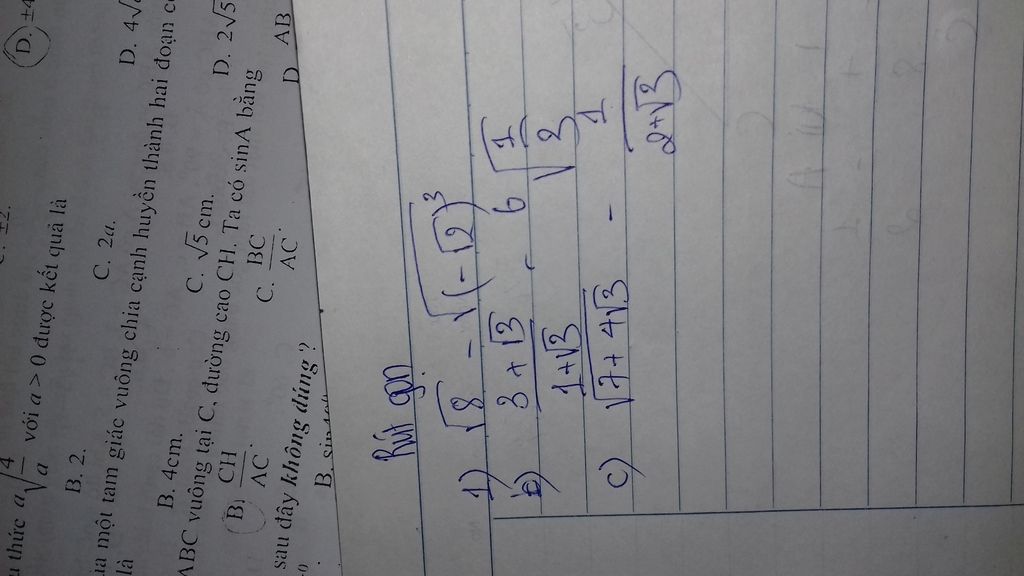 D. ±4
C. ±2.
u thức a√(4/a) với a > 0 được kết quả là
B. 2.
C. 2a.
D. 4√
ủa một tam giác vuông chia cạnh huyền thành hai đoạn
là
B. 4cm.
C. √5 cm.
D. 2√5
ABC vuông tại C, đường cao CH. Ta có sinA bằng
B. CH/AC.
C. BC/AC.
D AB
sau đây không đúng ?
B.
Rút gọn
1) √8 - √((-√2)³)
b) (3+√3)/(1+√3) - 6√(1/3)
c) √(7+4√3) - 1/(2+√3)